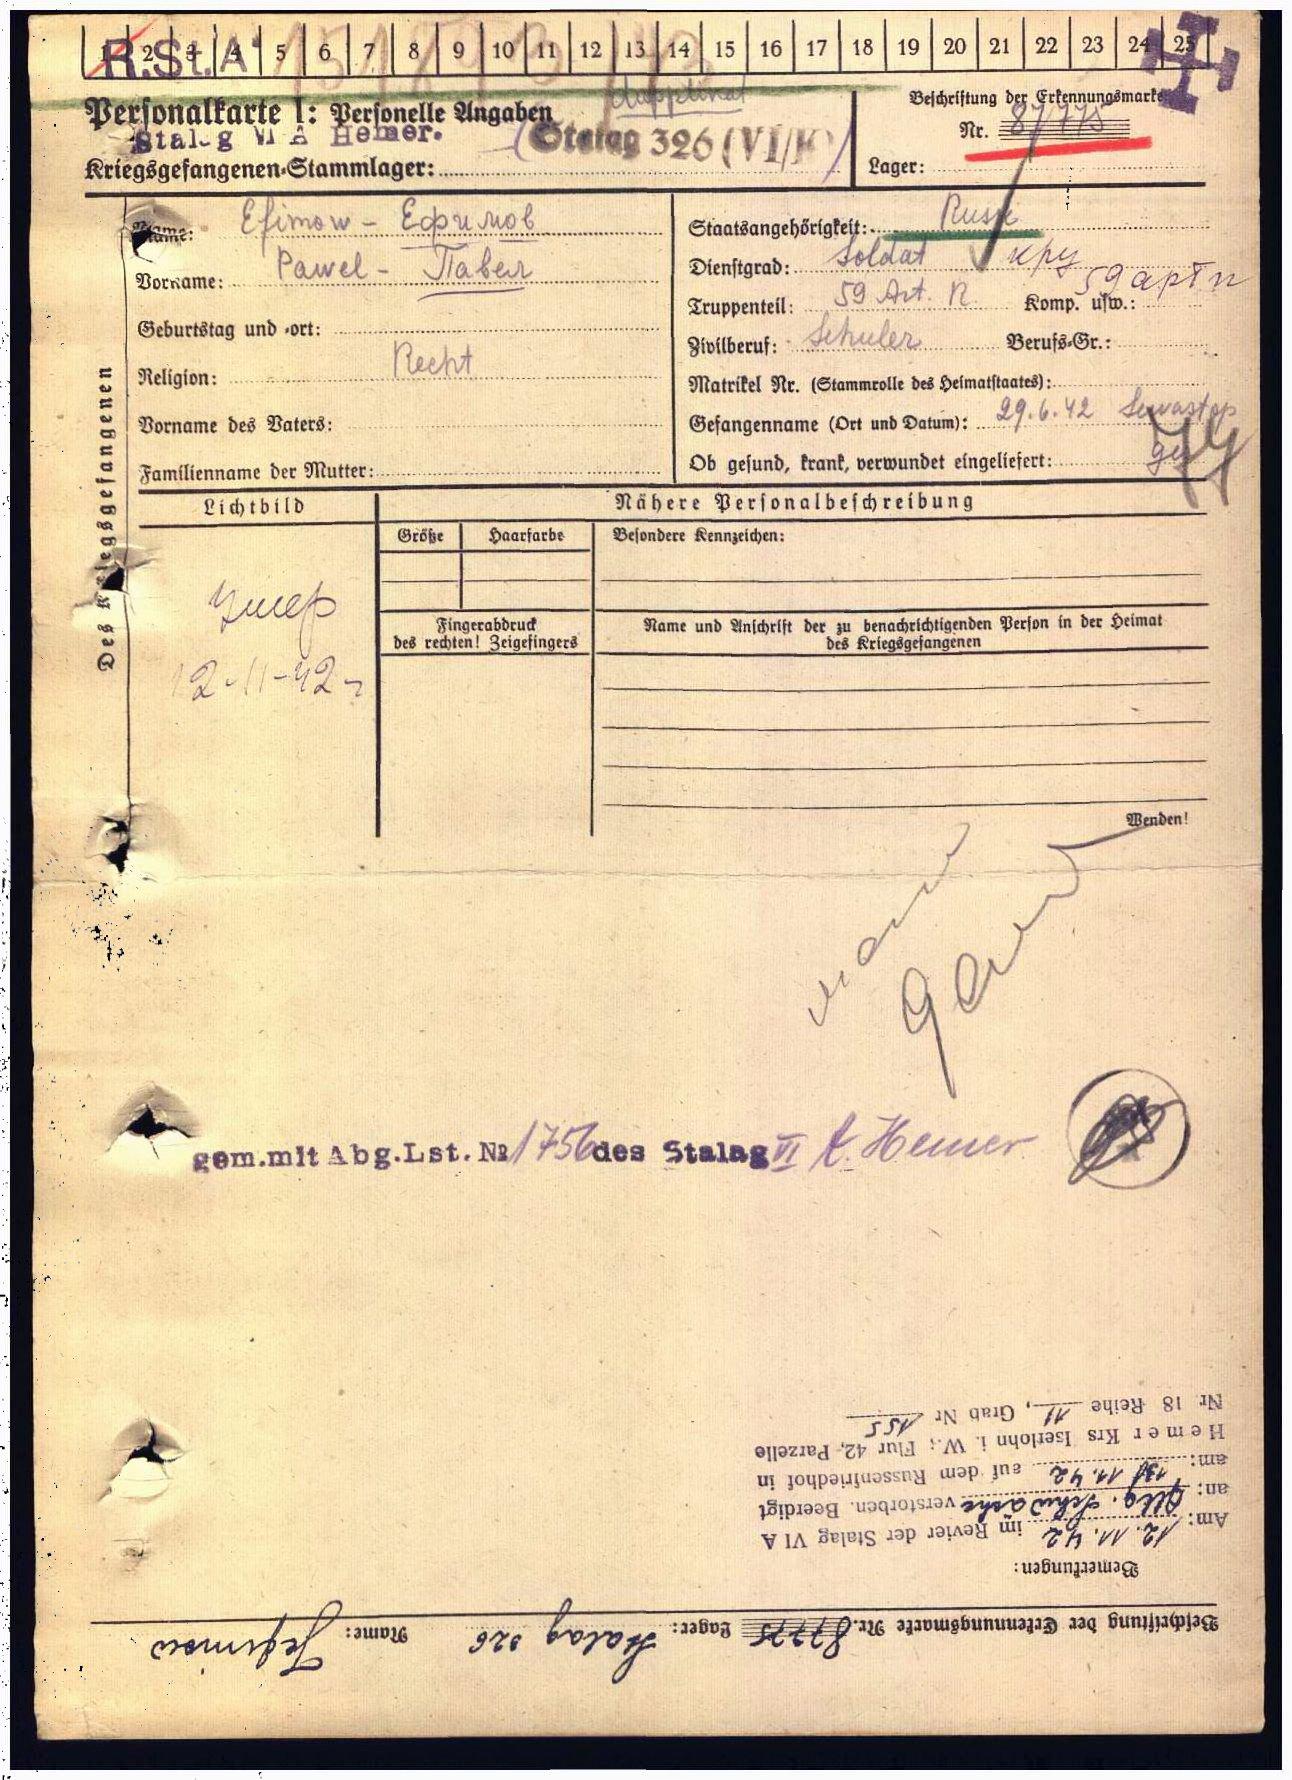 1 2 3 4 5 6 7 8 9 10 11 12 13 14 15 16 17 18 19 20 21 22 23 24 25
R.St.A
Personalkarte I: Personelle Angaben
Beschriftung der Erkennungsmarke
Nr. 87775
Stalag VI A Hemer.
(Stalag 326 (VI/K)
Kriegsgefangenen-Stammlager:
Lager:
Des Kriegsgefangenen
Name: Efimow - Ефимов
Vorname: Pawel - Павел
Geburtstag und -ort:
Religion: Recht
Vorname des Vaters:
Familienname der Mutter:
Staatsangehörigkeit: Russe
Dienstgrad: Soldat кру
Truppenteil: 59 Art. R. Komp. usw.: 59 арт п
Zivilberuf: Schuler Berufs-Gr.:
Matrikel Nr. (Stammrolle des Heimatstaates):
Gefangennahme (Ort und Datum): 29.6.42 Sewastop
Ob gesund, krank, verwundet eingeliefert:
Lichtbild
Nähere Personalbeschreibung
Größe
Haarfarbe
Besondere Kennzeichen:
Fingerabdruck
des rechten! Zeigefingers
Name und Anschrift der zu benachrichtigenden Person in der Heimat
des Kriegsgefangenen
умер
12-11-42
Wenden!
gem.mit Abg.Lst. № 1756 des Stalag VI A. Hemer
Beschriftung der Erkennungsmarke Nr. 87775 Lager: Stalag 326 Name: Jefimow
Bemerkungen:
Am: 12.11.42 im Revier der Stalag VI A
an: Allg. Schwäche verstorben. Beerdigt
am: 13.11.42 auf dem Russenfriedhof in
Hemer Krs Iserlohn i. W.; Flur 42, Parzelle
Nr 18 Reihe 11, Grab Nr 155